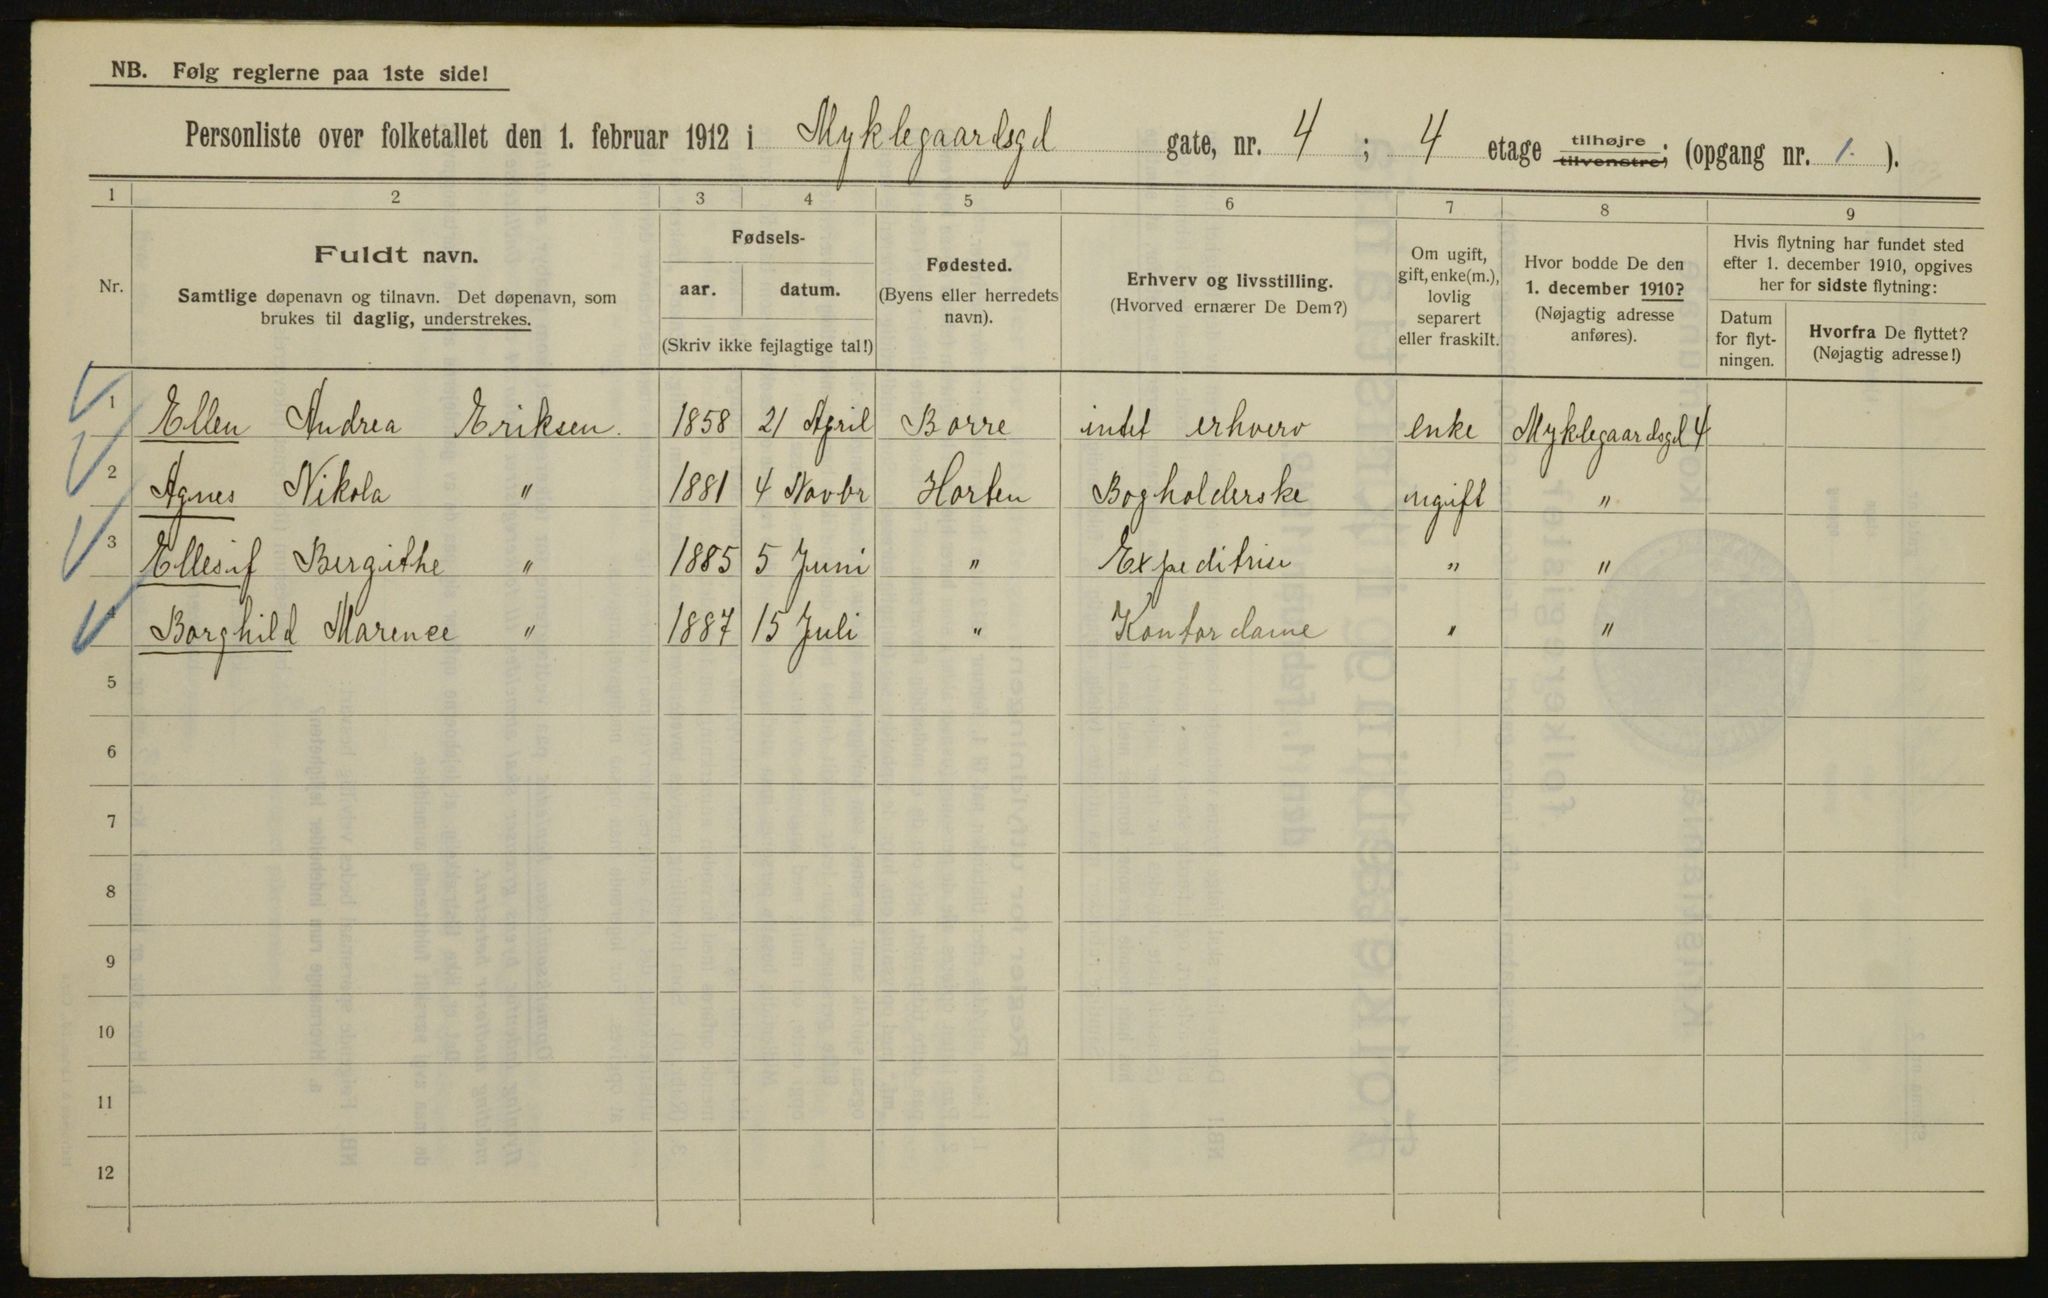 NB. Følg reglerne paa 1ste side!
Personliste over folketallet den 1. februar 1912 i Myklegaardsgd gate, nr. 4 ; 4 etage tilhøjre. tilvenstre, (opgang nr. 1. ).
1 2 3 4 5 6 7 8 9
Nr.
Fuldt navn.
Samtlige døpenavn og tilnavn. Det døpenavn, som
brukes til daglig, understrekes.
Fødsels-
aar. datum.
(Skriv ikke fejlagtige tal!)
Fødested.
(Byens eller herredets
navn).
Erhverv og livsstilling.
(Hvorved ernærer De Dem?)
Om ugift,
gift, enke(m.),
lovlig
separert
eller fraskilt.
Hvor bodde De den
1. december 1910?
(Nøjagtig adresse
anføres).
Hvis flytning har fundet sted
efter 1. december 1910, opgives
her for sidste flytning:
Datum
for flyt-
ningen.
Hvorfra De flyttet?
(Nøjagtig adresse!)
1 Ellen Andrea Eriksen. 1858 21 April Borre intet erhverv enke Myklegaardsgd 4
2 Agnes Nikola " 1881 4 Novbr Horten Bogholderske ugift "
3 Ellesif Bergithe " 1885 5 Juni " Expeditrise " "
4 Borghild Marence " 1887 15 Juli " Kontordame " "
5
6
7
8
9
10
11
12